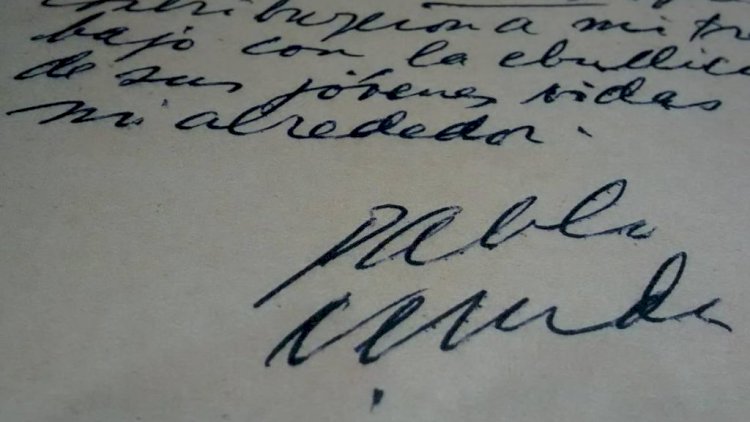 contribuyeron a mi tra
bajo con la ebullici
de sus jóvenes vidas
mi alrededor.
Pablo
Neruda